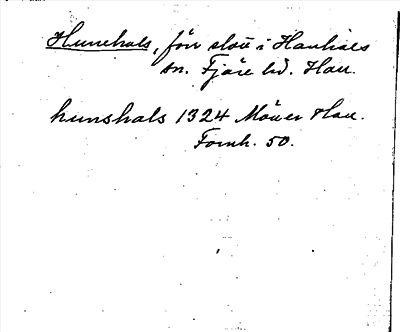 Hunehals, förr slott i Hanhals
sn. Fjäre hd. Hall.
hunshals 1324 Möller Hall.
Fornh. 50.